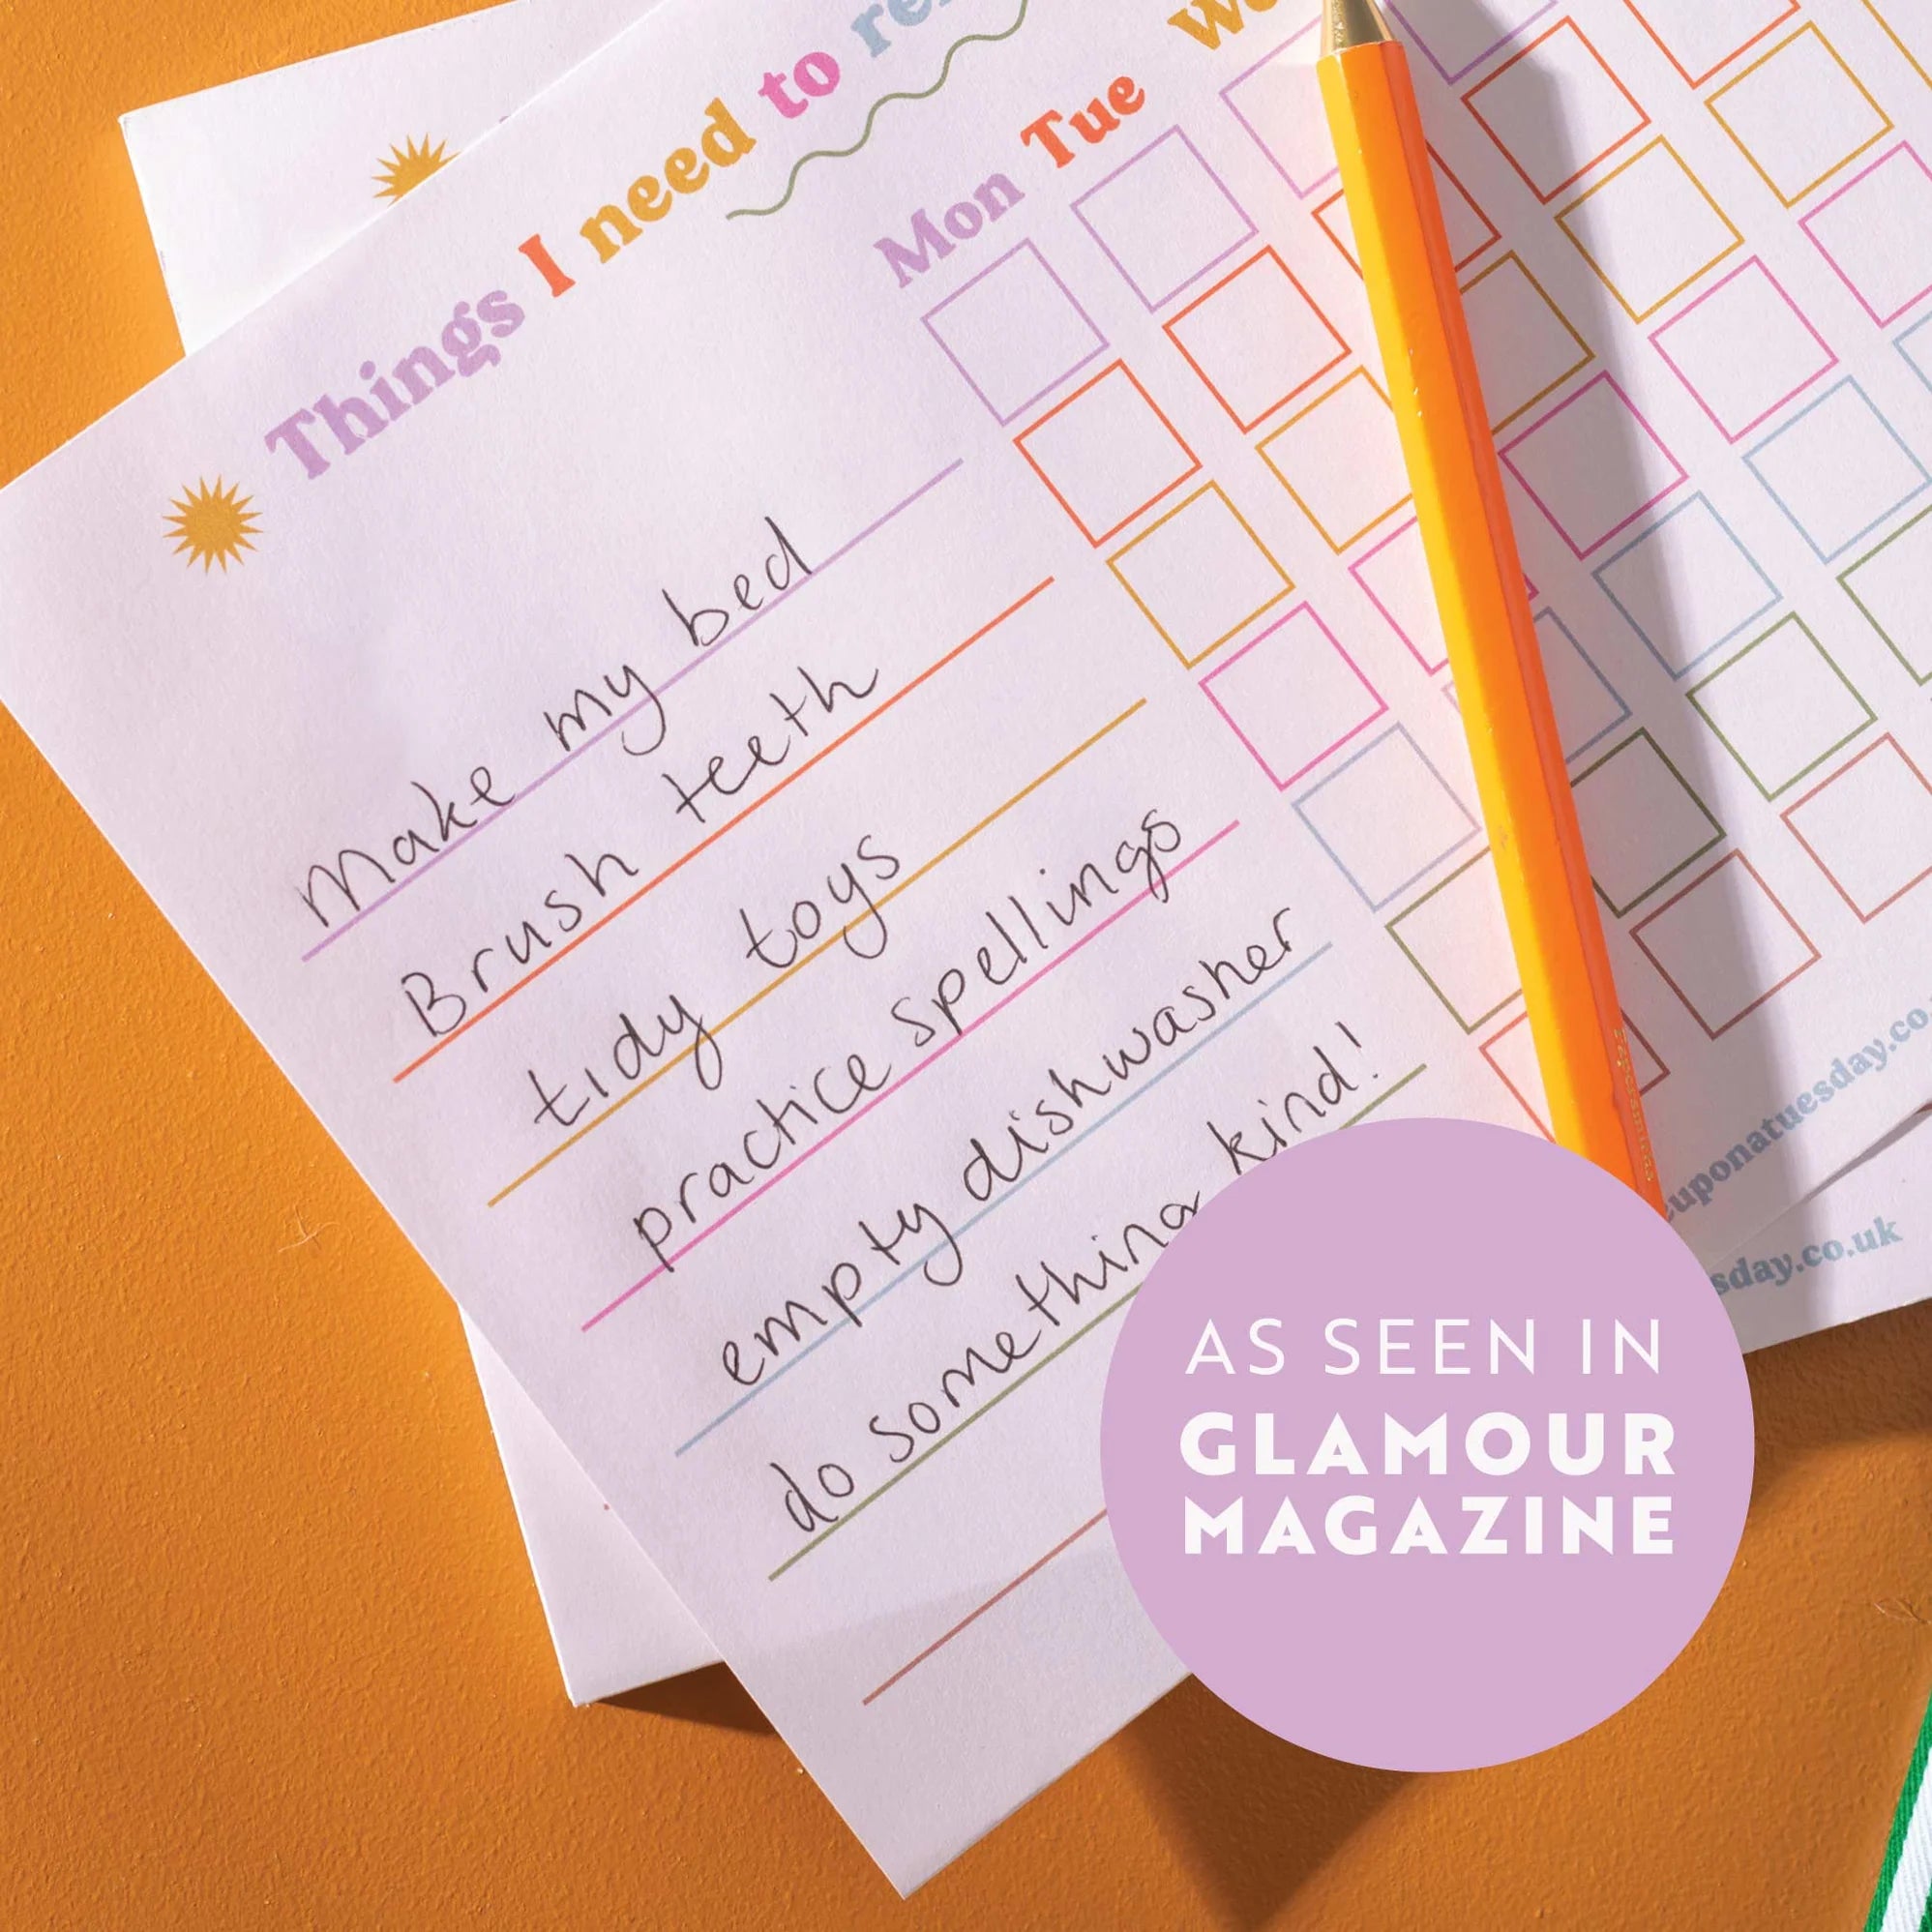 Things I need to
Mon Tue
Make my bed
Brush teeth
tidy toys
practice spellings
empty dishwasher
do something kind!
uponatuesday.co.
sday.co.uk
AS SEEN IN
GLAMOUR
MAGAZINE